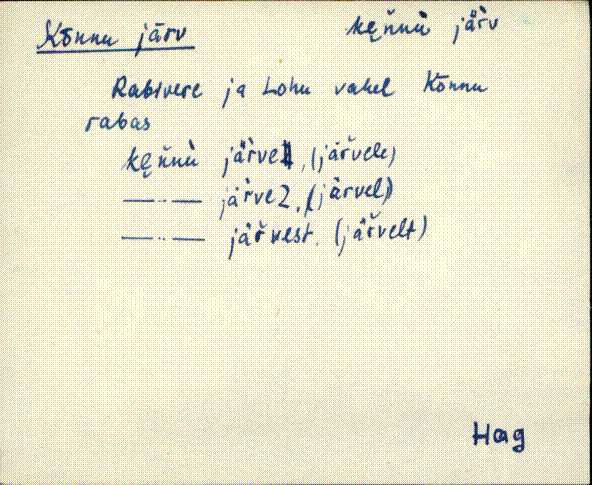 Kõnnu järv kȩn̆nù jär̀v
Rabivere ja Lohu vahel Kõnnu
rabas
kȩn̆nù järve, (järvele)
—·— järvez, (järvel)
—·— järvest. (järvelt)
Hag